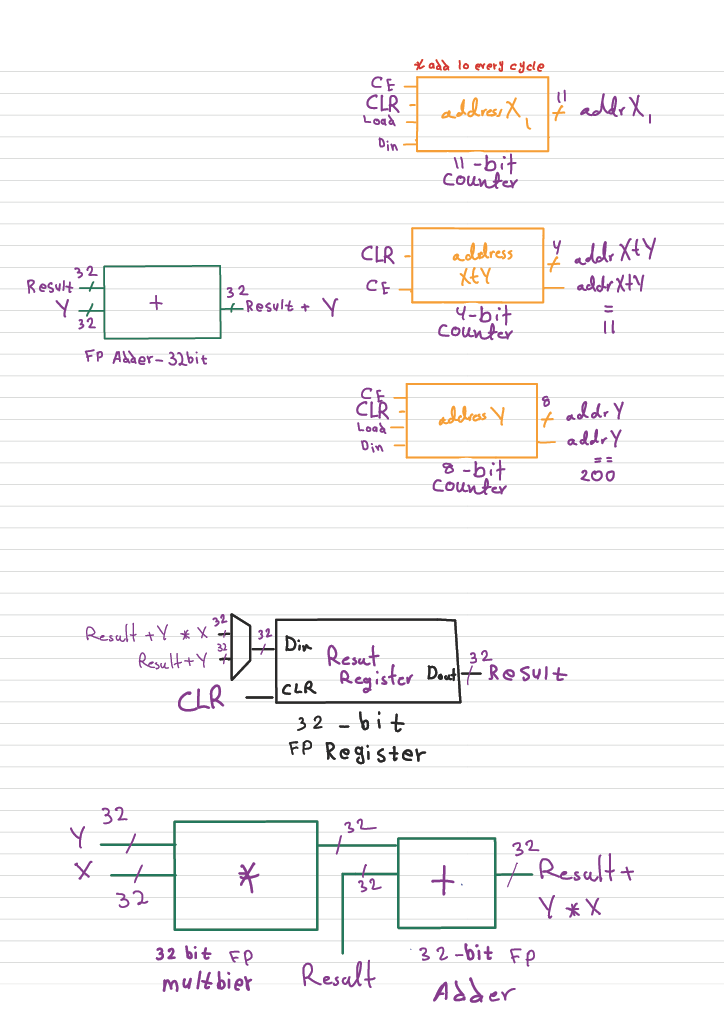 * add 10 every cycle
CE
CLR
Load
Din
address X1
11
addr X1
11-bit
Counter
CLR
CE
address
X+Y
4
addr X+Y
addr X+Y
=
11
4-bit
Counter
32
Result
Y
32
+
32
Result + Y
FP Adder-32bit
CE
CLR
Load
Din
address Y
8
addr Y
addr Y
==
200
8-bit
Counter
Result + Y * X
32
Result + Y
32
32
CLR
Din
CLR
Resut
Register
Dout
32
Result
32-bit
FP Register
Y
32
X
32
*
32
32
+
32
Result +
Y * X
32 bit FP
multbier
Result
32-bit FP
Adder